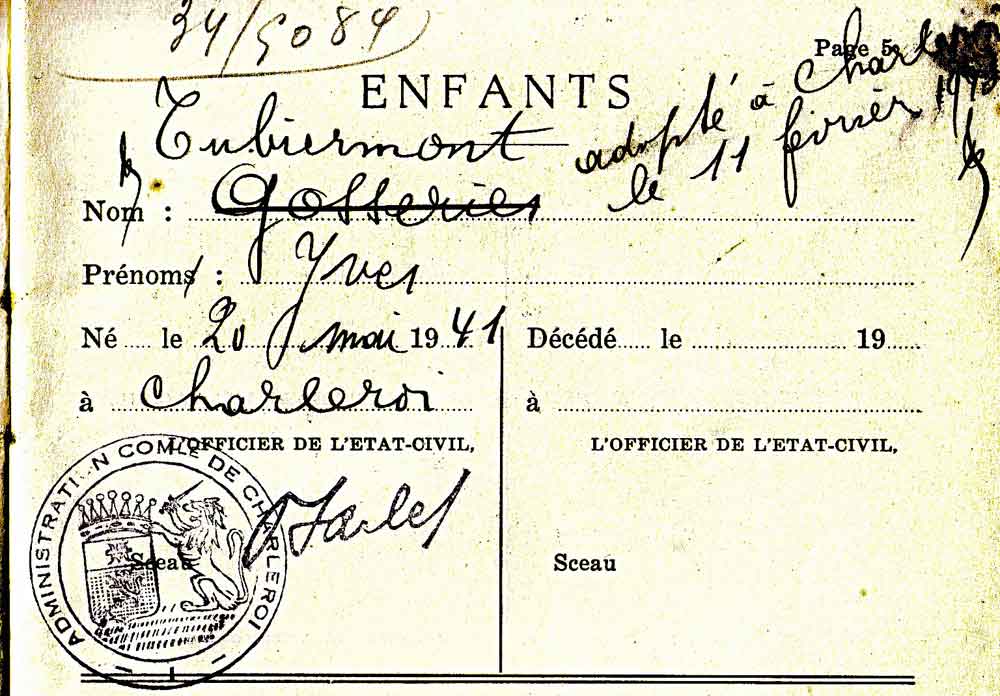 34/5084
Page 5
ENFANTS
Tubiermont
adopté à Charl
le 11 février
Nom : Gosseries
Prénoms : Yves
Né le 20 mai 1941
à Charleroi
L'OFFICIER DE L'ETAT-CIVIL,
ADMINISTRATION COMLE DE CHARLEROI
Sceau
Décédé le 19
à
L'OFFICIER DE L'ETAT-CIVIL,
Sceau